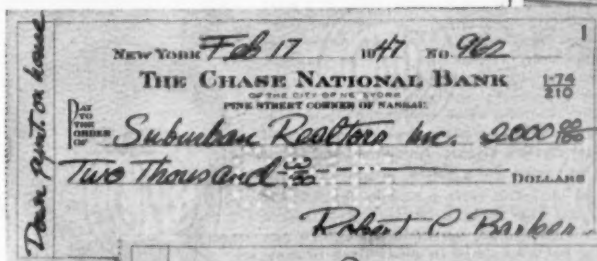 Down paym't on house
NEW YORK Feb 17 1947 NO. 962
1
THE CHASE NATIONAL BANK
OF THE CITY OF NEW YORK
PINE STREET CORNER OF NASSAU
1-74
210
PAY TO THE ORDER OF Suburban Realtors Inc. 2000 00/100
Two Thousand 00/00 DOLLARS
Robert P. Barker